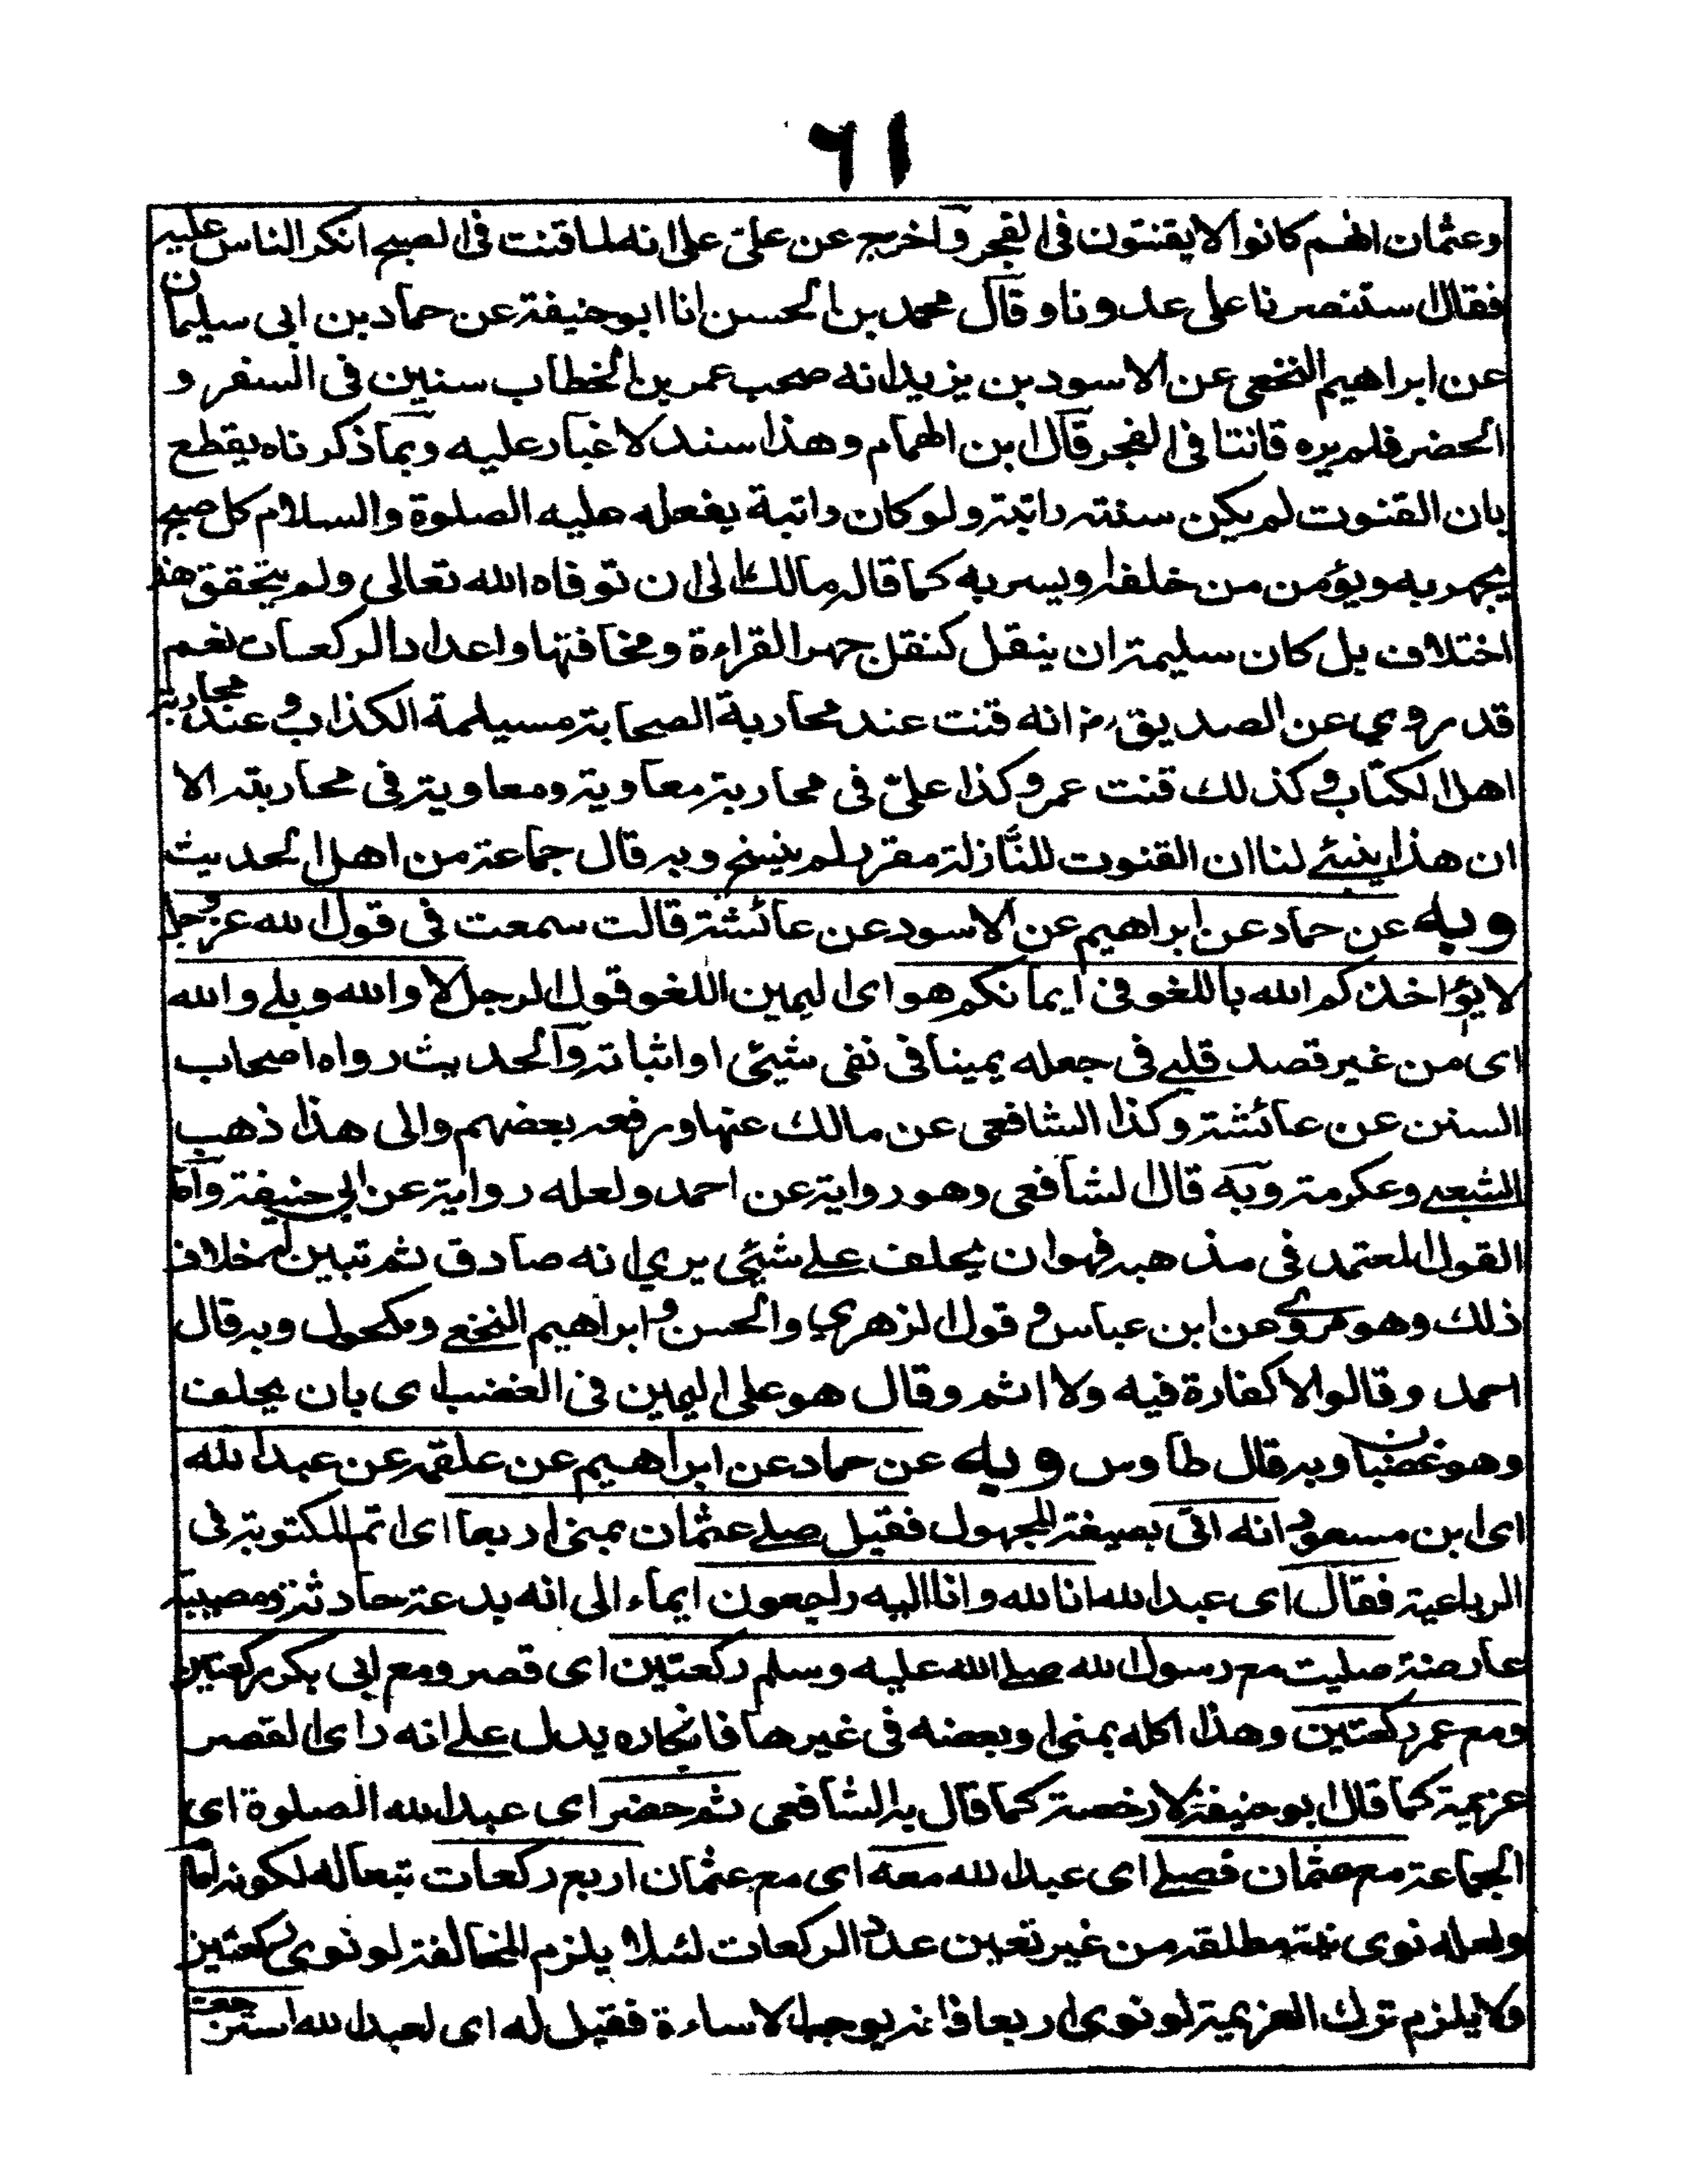 ١٦
وعثمان انهم كانوا لا يقنتون فى الفجر واخرج عن علىّ على انه لما قنت فى الصبح انكر الناس عليه
فقال ستنصرنا على عدونا وقال محمد بن الحسن انا ابو حنيفة عن حماد بن ابى سليمان
عن ابراهيم النخعى عن الاسود بن يزيد انه صحب عمر بن الخطاب سنين فى السفر و
الحضر فلم يره قانتا فى الفجر قال ابن الهمام وهذا سند لا غبار عليه وبما ذكرناه يقطع
بان القنوت لم يكن سنته راتبة ولو كان راتبة يفعله عليه الصلوة والسلام كل صبح
يجهر به ويؤمن من خلفه او يسر به كما قاله مالك الى ان توفاه الله تعالى ولم يتحقق هذا
اختلاف بل كان سليمة ان ينقل كنقل جهر القراءة ومخافتها واعداد الركعات نعم
قد روي عن الصديق رض انه قنت عند محاربة الصحابة مسيلمة الكذاب وعند محاربة
اهل الكتاب وكذلك قنت عمر وكذا علىّ فى محاربة معاوية ومعاوية فى محاربته الا
ان هذا ينبئ لنا ان القنوت للنَّازلة مقرر لم ينسخ وبه قال جماعة من اهل الحديث
وبه عن حماد عن ابراهيم عن الاسود عن عائشة قالت سمعت فى قول الله عز وجل
لا يؤاخذكم الله باللغو فى ايمانكم هو اى اليمين اللغو قول الرجل لا والله وبلے والله
اى من غير قصد قلبے فى جعله يمينا فى نفى شيئ او اثباته والحديث رواه اصحاب
السنن عن عائشة وكذا الشافعى عن مالك عنها ورفعه بعضهم والى هذا ذهب
الشعبے وعكرمة وبه قال الشافعى وهو رواية عن احمد ولعله رواية عن ابي حنيفة واما
القول المعتمد فى مذهبه فهو ان يحلف علے شيئ يري انه صادق ثم تبين له خلاف
ذلك وهو مروے عن ابن عباس و قول الزهري والحسن و ابراهيم النخعے ومكحول وبه قال
احمد وقالوا لا كفارة فيه ولا اثم وقال هو على اليمين فى الغضب اى بان يحلف
وهو غضبان وبه قال طاوس وبه عن حماد عن ابراهيم عن علقمه عن عبد الله
اى ابن مسعود انه اتى بصيغة المجهول فقيل صلے عثمان بمنى اربعا اى اتم المكتوبة فى
الرباعية فقال اى عبد الله انا لله وانا اليه راجعون ايماء الى انه بدعة حادثة ومصيبة
عارضة صليت مع رسول الله صلے الله عليه وسلم ركعتين اى قصر ومع ابى بكر ركعتين
ومع عمر ركعتين وهذا كله بمنى وبعضه فى غيرها فانكاره يدل علے انه راى القصر
عزيمة كما قال ابو حنيفة لا رخصة كما قال به الشافعى ثم حضر اى عبد الله الصلوة اى
الجماعة مع عثمان فصلے اى عبد الله معه اى مع عثمان اربع ركعات تبعا له لكونه اماما
ولعله نوى نية مطلقه من غير تعين عدد الركعات لئلا يلزم المخالفة لو نوى ركعتين
ولا يلزم ترك العزيمة لو نوى اربعا فانه يوجب الاساءة فقيل له اى لعبد الله استرجعت